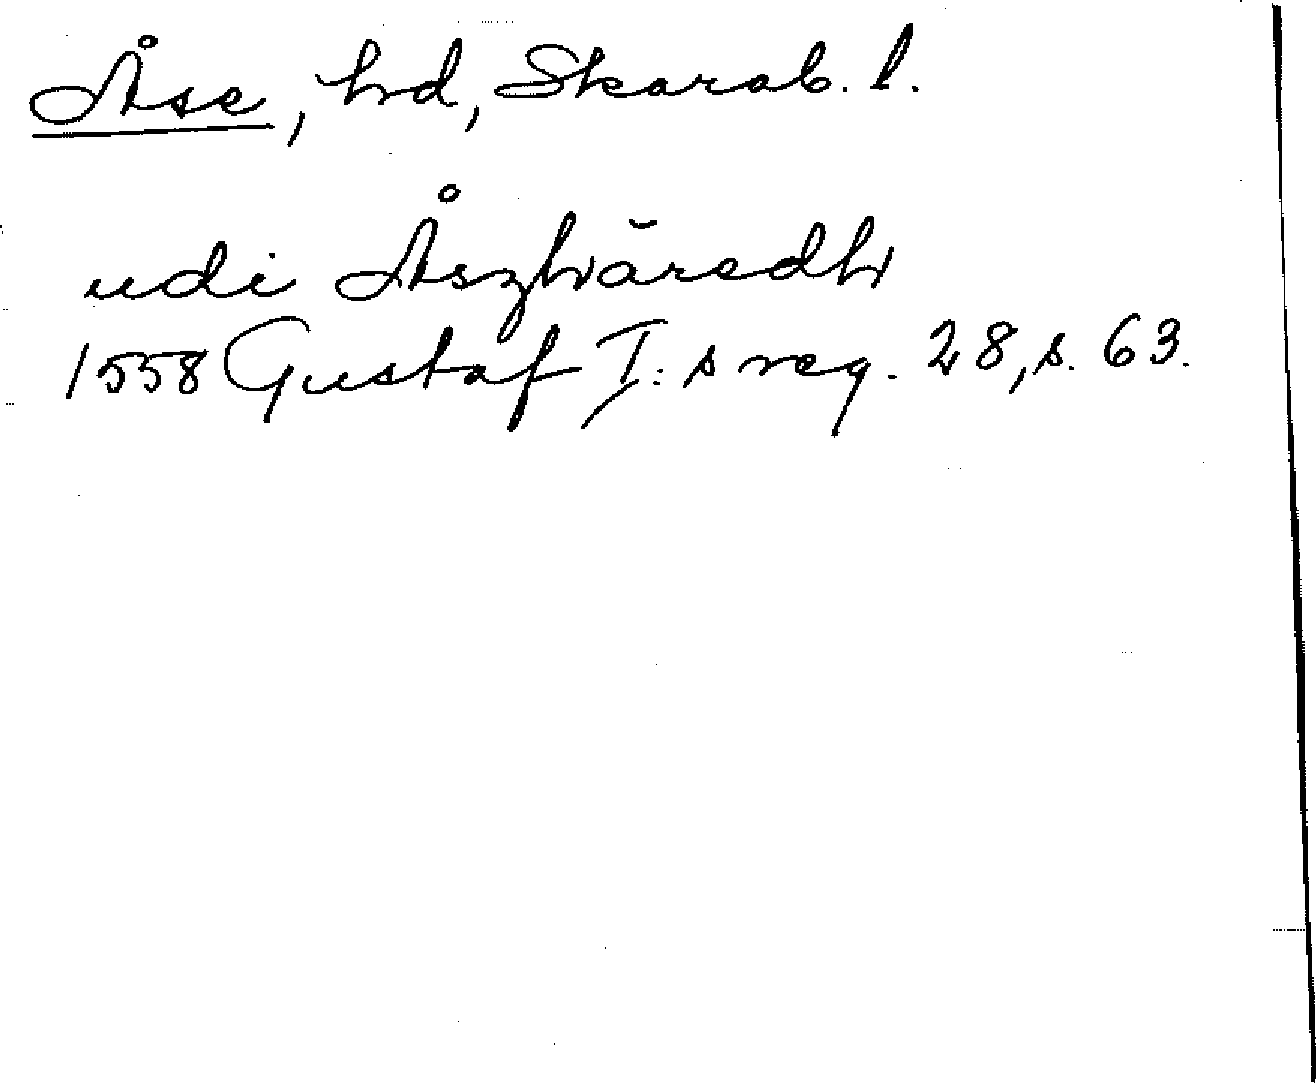 Åse, hd, Skarab. l.
udi Åszhäredh
1558 Gustaf I:s reg. 28, s. 63.